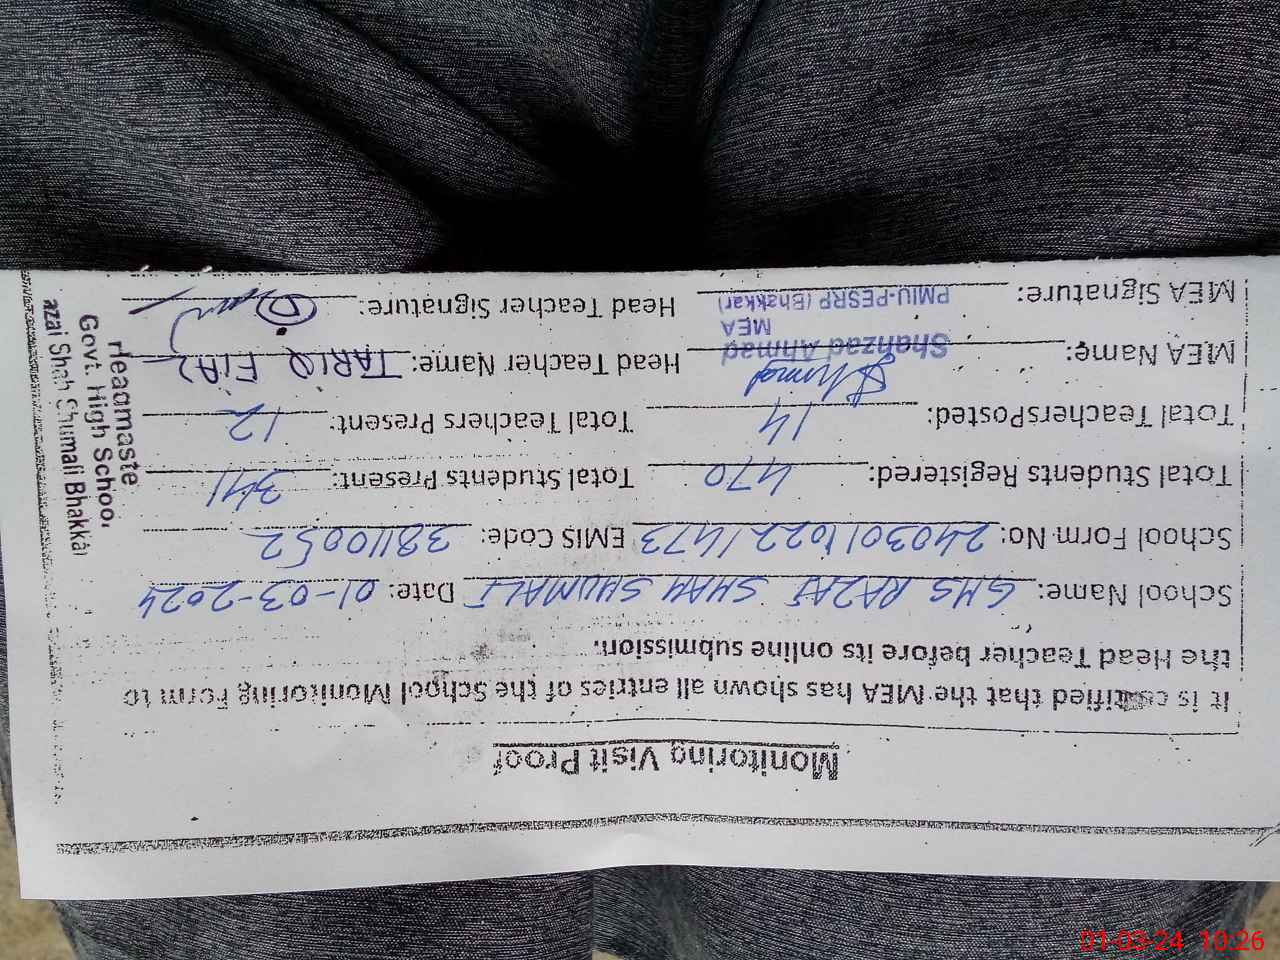 Monitoring Visit Proof
It is certified that the MEA has shown all entries of the School Monitoring Form to
the Head Teacher before its online submission.
School Name: GHS RAZAI SHAH SHUMALI Date: 01-03-2024
School Form No: 2403011022/1473 EMIS Code: 38110052
Total Students Registered: 470 Total Students Present: 341
Total TeachersPosted: 14 Total Teachers Present: 12
MEA Name: Shahzad Ahmad Head Teacher Name: TARIQ
MEA
PMIU-PESRP (Bhakkar)
MEA Signature: Head Teacher Signature:
Headmaste
Govt. High School,
azai Shah Shumali Bhakkar
01-03-24 10:26